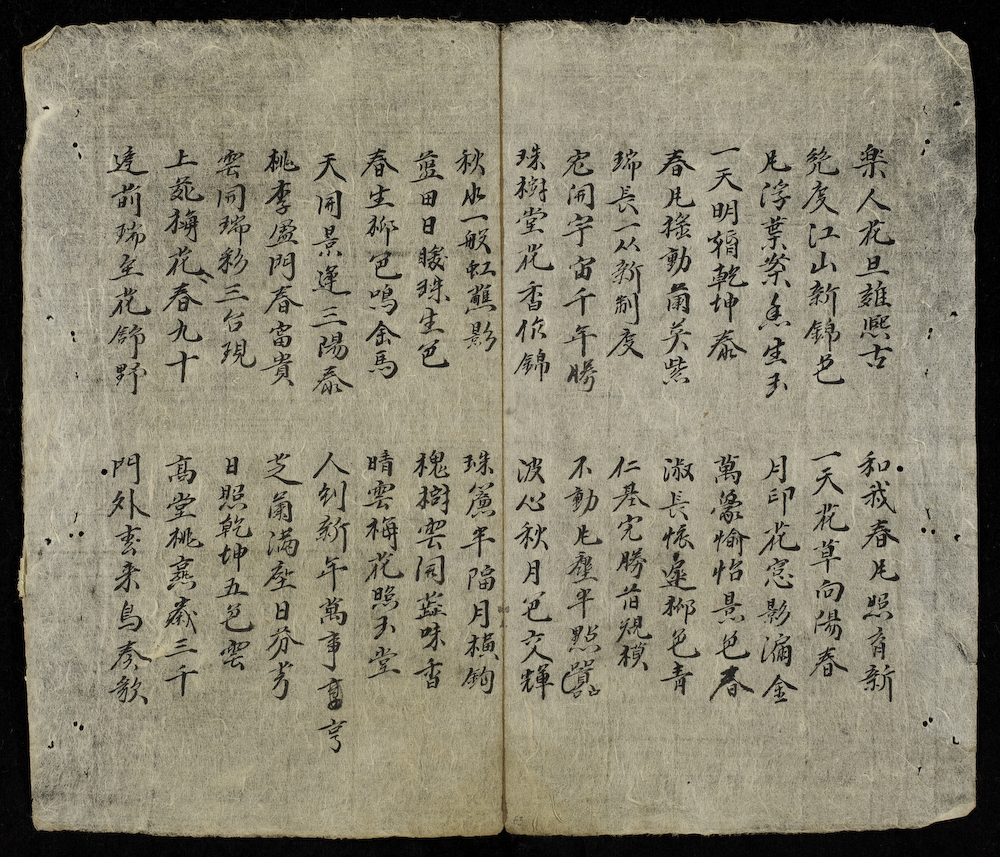 楽人花旦雖熈古 和我春凡照育新
度江山新錦色 一天花草向陽春
凡浮葉案生玉 月印花窓影滿金
一天明乾坤泰 萬愉怡景色春
春凡祿動蘭英紫 淑長邊柳色青
瑞長一从新制度 仁基完勝昔規模
宏開宇宙千年勝 不動凡塵半點
珠樹堂花香作錦 波心秋月色交輝
秋水一般虹蘸影 珠簾半隔月鈎
藍田日暖珠生色 槐樹雲同味香
春生柳色鳴金馬 晴雲梅花照玉堂
天開景運三陽泰 人到新年萬事亨
桃李盈門春富貴 芝蘭滿座日芬芳
雲開瑞彩三台現 日照乾坤五色雲
上苑梅花春九十 高堂桃歲三千
前瑞至花舒野 門外来鳥奏歌